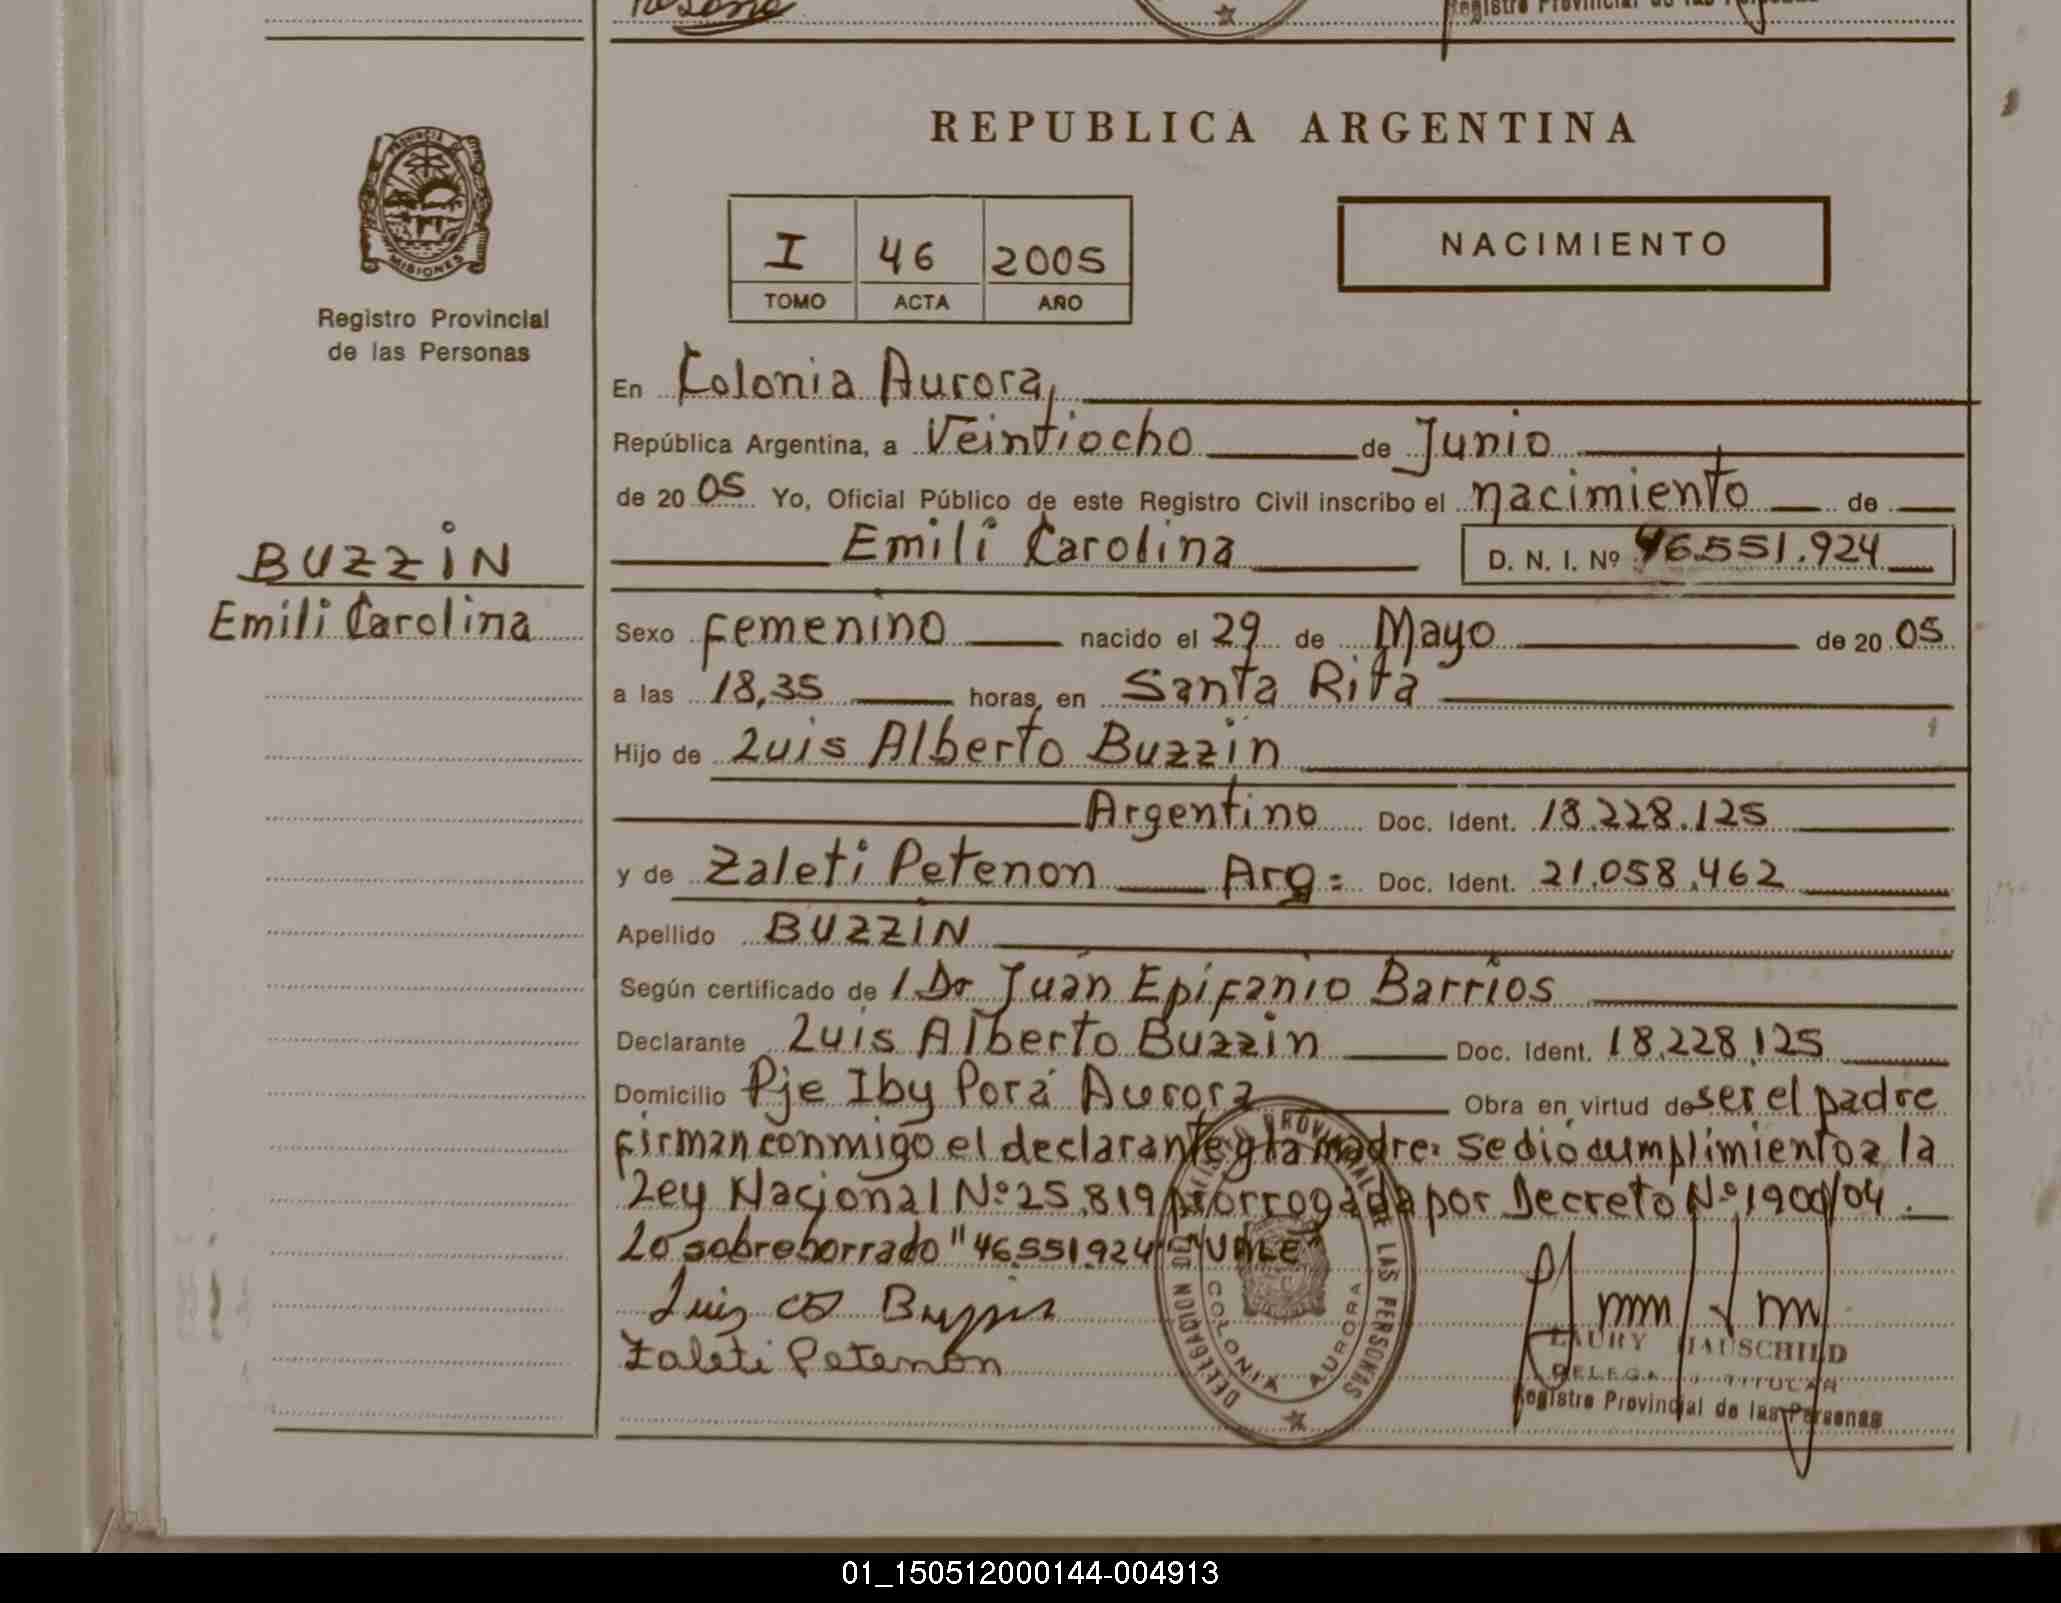 Registro Provincial de las Personas
REPUBLICA ARGENTINA
PROVINCIA DE
MISIONES
Registro Provincial
de las Personas
I 46 2005
TOMO ACTA AÑO
NACIMIENTO
BUZZIN
Emili Carolina
En Colonia Aurora,
República Argentina, a Veintiocho de Junio
de 20 05 Yo, Oficial Público de este Registro Civil inscribo el nacimiento de
Emili Carolina D. N. I. Nº 46.551.924
Sexo femenino nacido el 29 de Mayo de 20 05
a las 18,35 horas, en Santa Rita
Hijo de Luis Alberto Buzzin
Argentino Doc. Ident. 18.228.125
y de Zaleti Petenon Arg: Doc. Ident. 21.058.462
Apellido BUZZIN
Según certificado de / Dr Juan Epifanio Barrios
Declarante Luis Alberto Buzzin Doc. Ident. 18.228.125
Domicilio Pje Iby Porá Aurora Obra en virtud de ser el padre
firman conmigo el declarante y la madre. se dió cumplimiento a la
Ley Nacional Nº 25.819 prorrogada por Decreto Nº 1900/04.
Lo sobreborrado "46.551.924" "VALE"
Luis Buzzin
Zaleti Petenon
DELEGACION DEL REGISTRO PROVINCIAL DE LAS PERSONAS
COLONIA AURORA
LAURY HAUSCHILD
DELEGADA TITULAR
Registro Provincial de las Personas
01_150512000144-004913